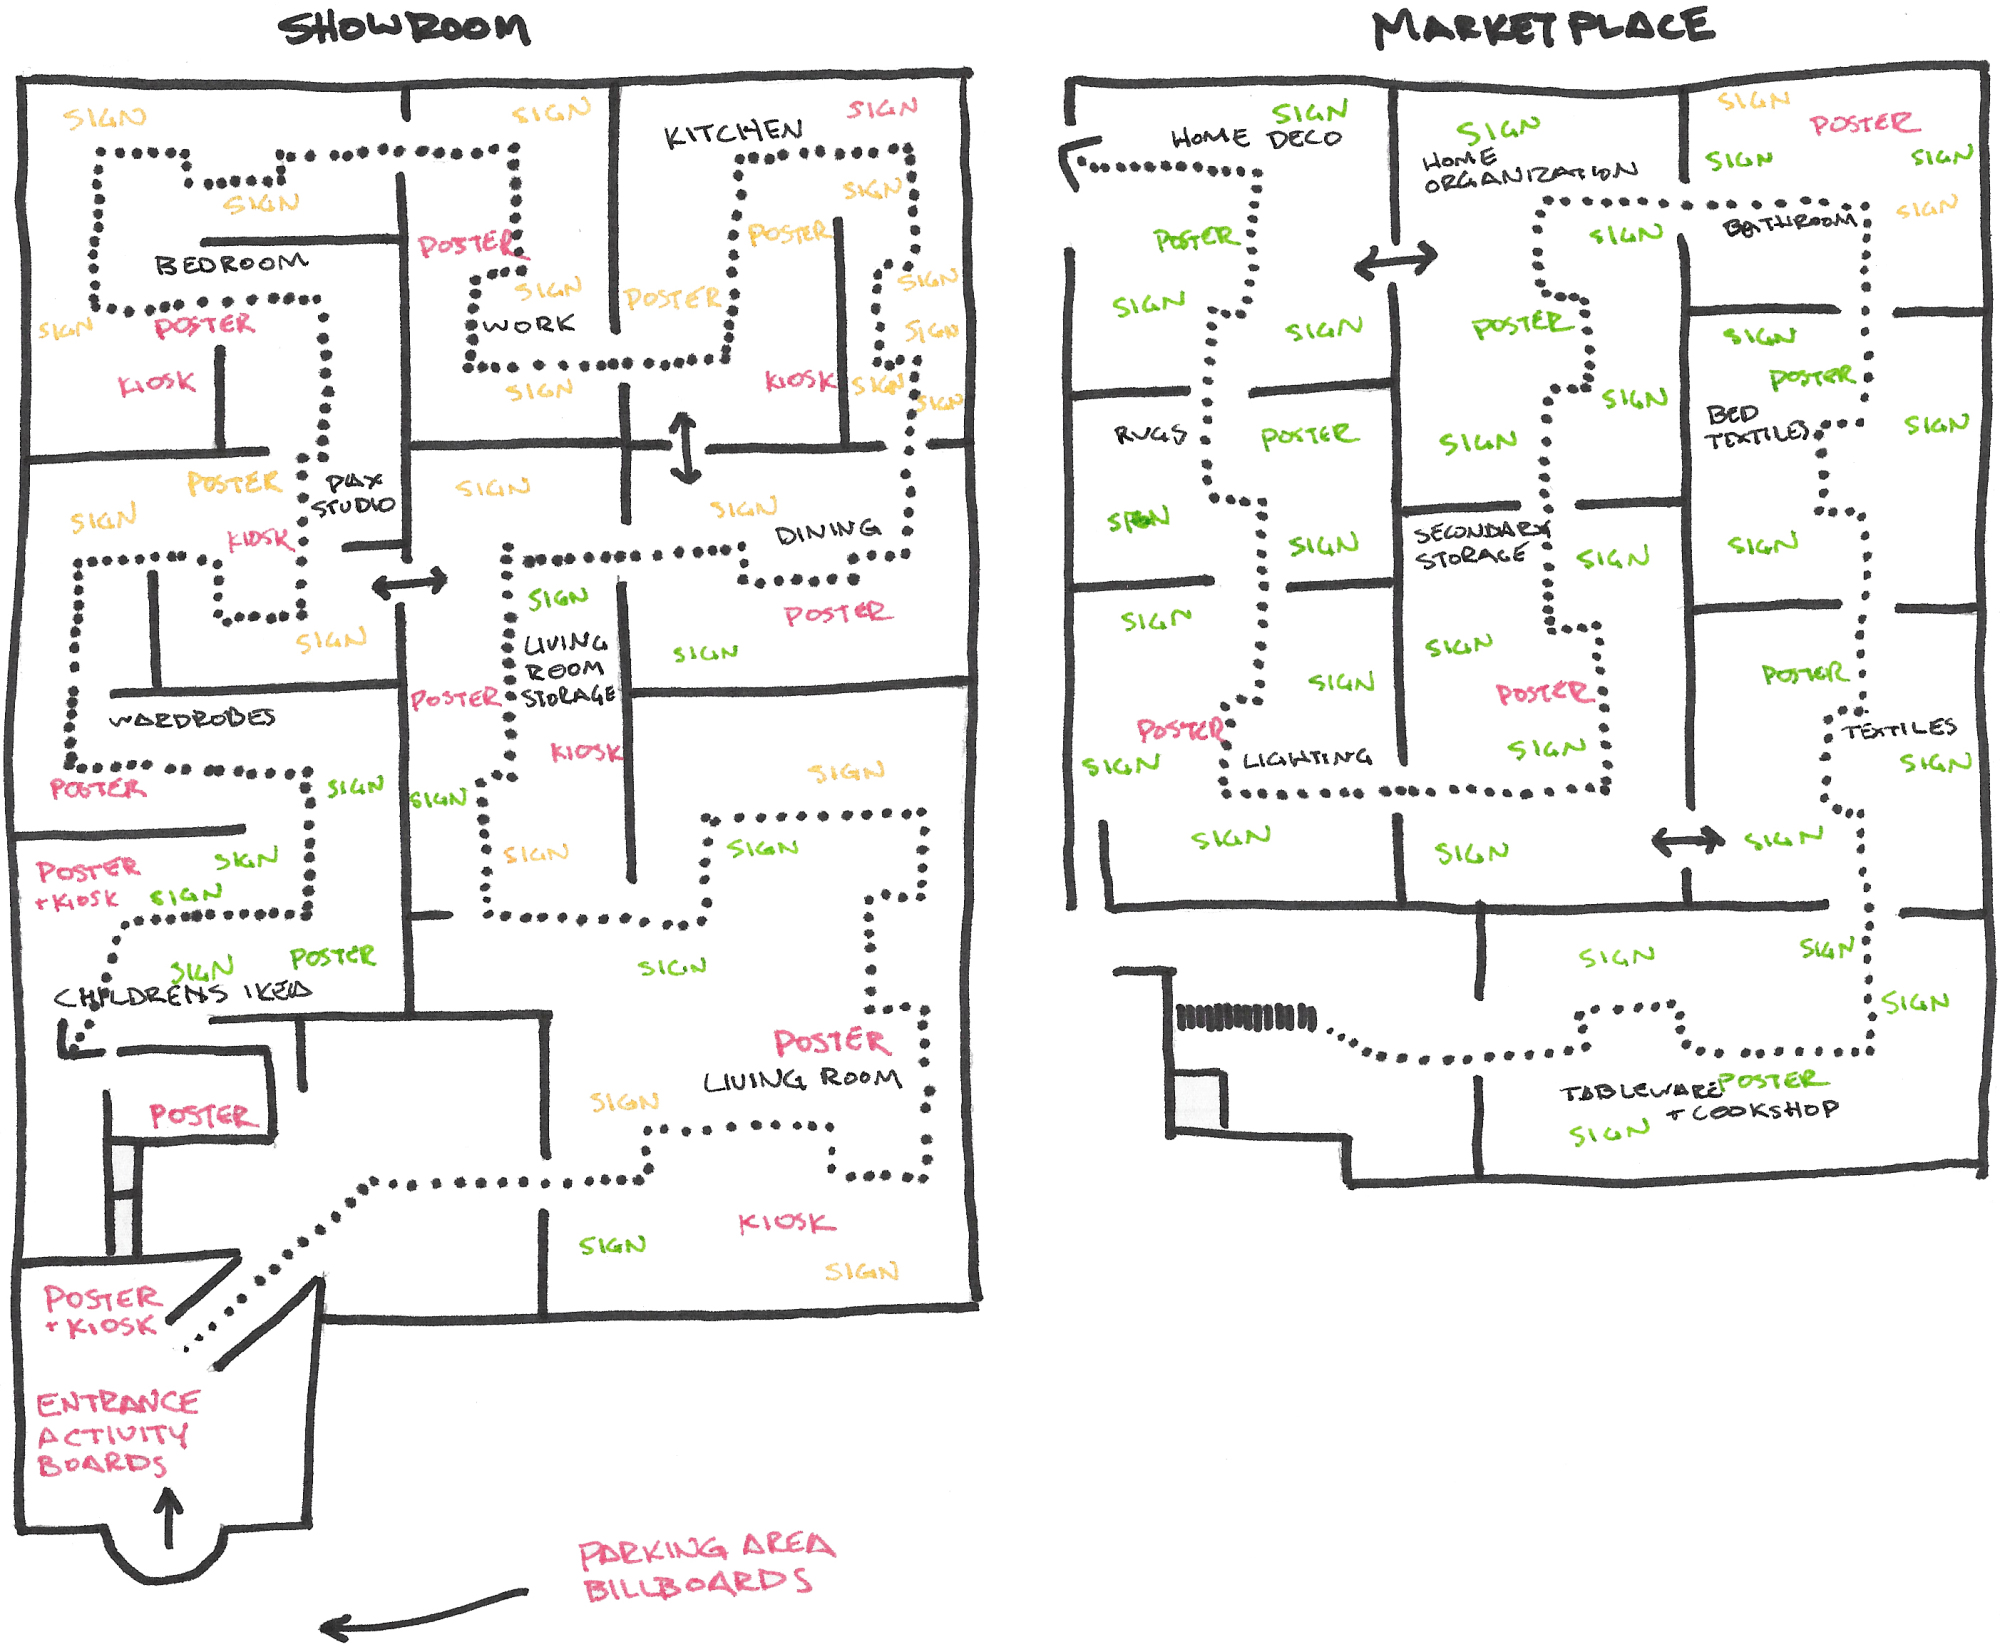 SHOWROOM
SIGN
SIGN
SIGN
KITCHEN
SIGN
SIGN
POSTER
SIGN
POSTER
BEDROOM
SIGN
POSTER
SIGN
SIGN
POSTER
WORK
SIGN
KIOSK
SIGN
KIOSK
SIGN
SIGN
POSTER
PAX
STUDIO
SIGN
SIGN
SIGN
DINING
KIOSK
SIGN
POSTER
SIGN
LIVING
ROOM
STORAGE
SIGN
POSTER
WARDROBES
KIOSK
POSTER
SIGN
SIGN
SIGN
POSTER
+ KIOSK
SIGN
SIGN
SIGN
SIGN
SIGN
POSTER
SIGN
CHILDRENS IKEA
POSTER
LIVING ROOM
POSTER
SIGN
SIGN
KIOSK
SIGN
POSTER
+ KIOSK
ENTRANCE
ACTIVITY
BOARDS
PARKING AREA
BILLBOARDS
MARKETPLACE
SIGN
HOME DECO
SIGN
HOME
ORGANIZATION
SIGN
POSTER
SIGN
SIGN
SIGN
BATHROOM
POSTER
SIGN
SIGN
SIGN
POSTER
SIGN
POSTER
RUGS
POSTER
SIGN
SIGN
BED
TEXTILES
SIGN
SIGN
SIGN
SECONDARY
STORAGE
SIGN
SIGN
SIGN
SIGN
SIGN
POSTER
POSTER
POSTER
LIGHTING
SIGN
SIGN
TEXTILES
SIGN
SIGN
SIGN
SIGN
SIGN
SIGN
SIGN
TABLEWARE
+ COOKSHOP
POSTER
SIGN